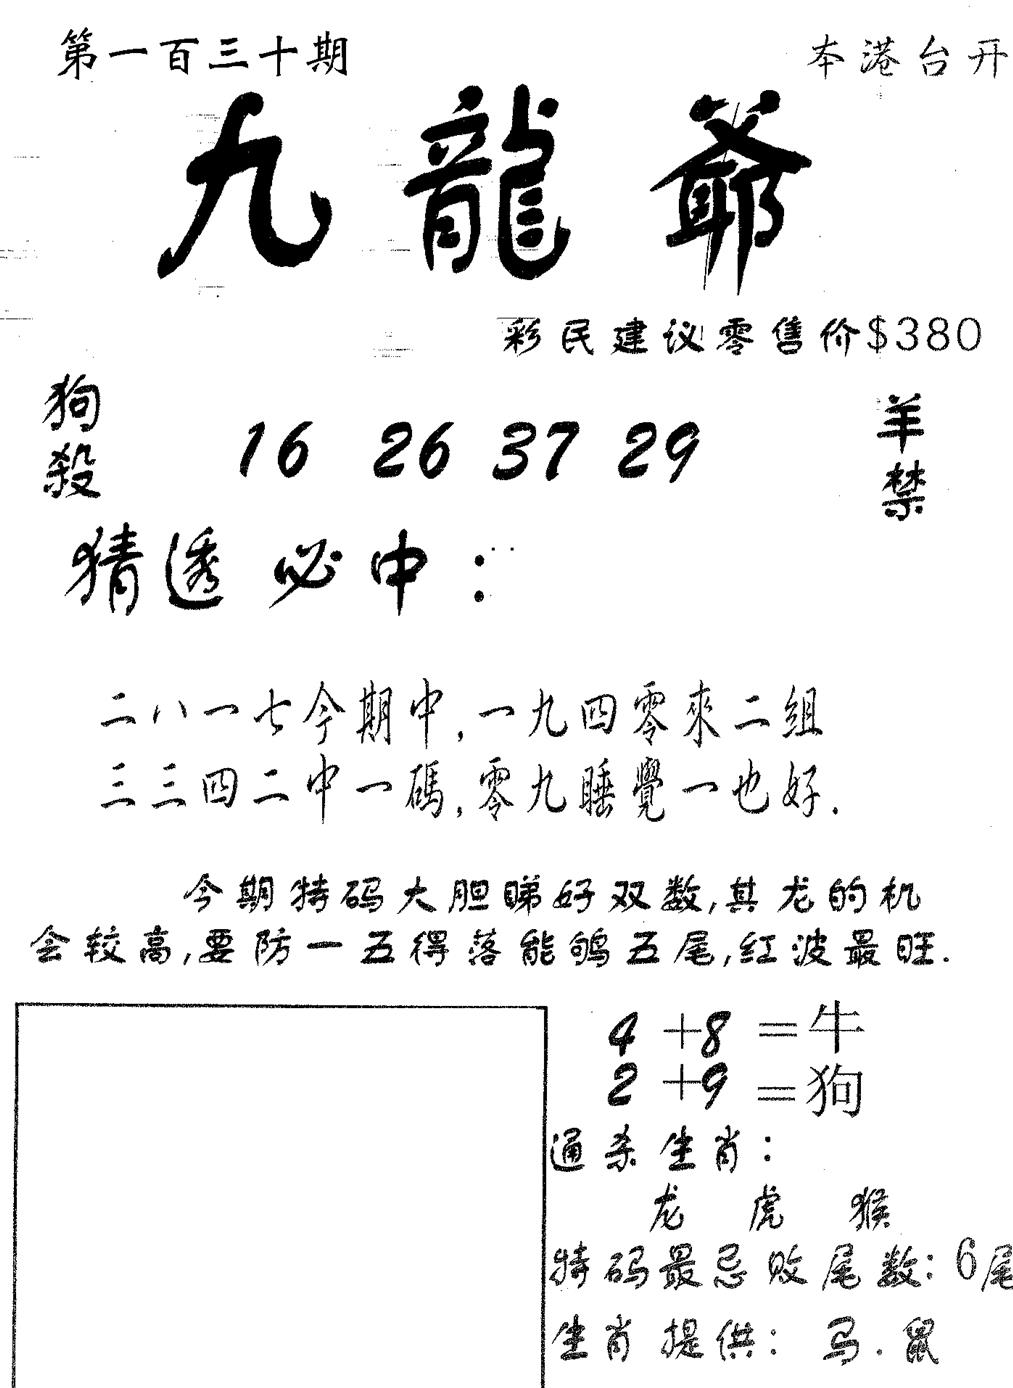 第一百三十期 本港台开
九龍爺
彩民建议零售价$380
狗殺 16 26 37 29 羊禁
猜透必中：
二八一七今期中,一九四零來二組
三三四二中一碼,零九睡覺一也好.
今期特码大胆睇好双数,其龙的机
会较高,要防一五得落能鸲五尾,红波最旺.
4+8=牛
2+9=狗
通杀生肖：
龙 虎 猴
特码最忌败尾数：6尾
生肖提供：马.鼠